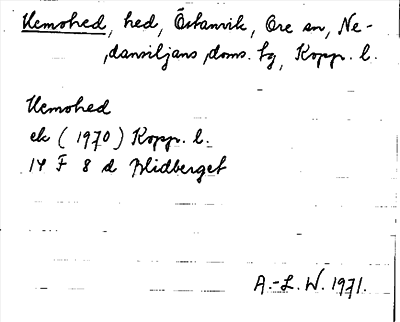 Kemohed, hed, Östanvik, Ore sn, Ne-
dansiljans doms. tg, Kopp. l.
Kemohed
ek (1970) Kopp. l.
14 F 8 d Blidberget
A.-L. W. 1971.